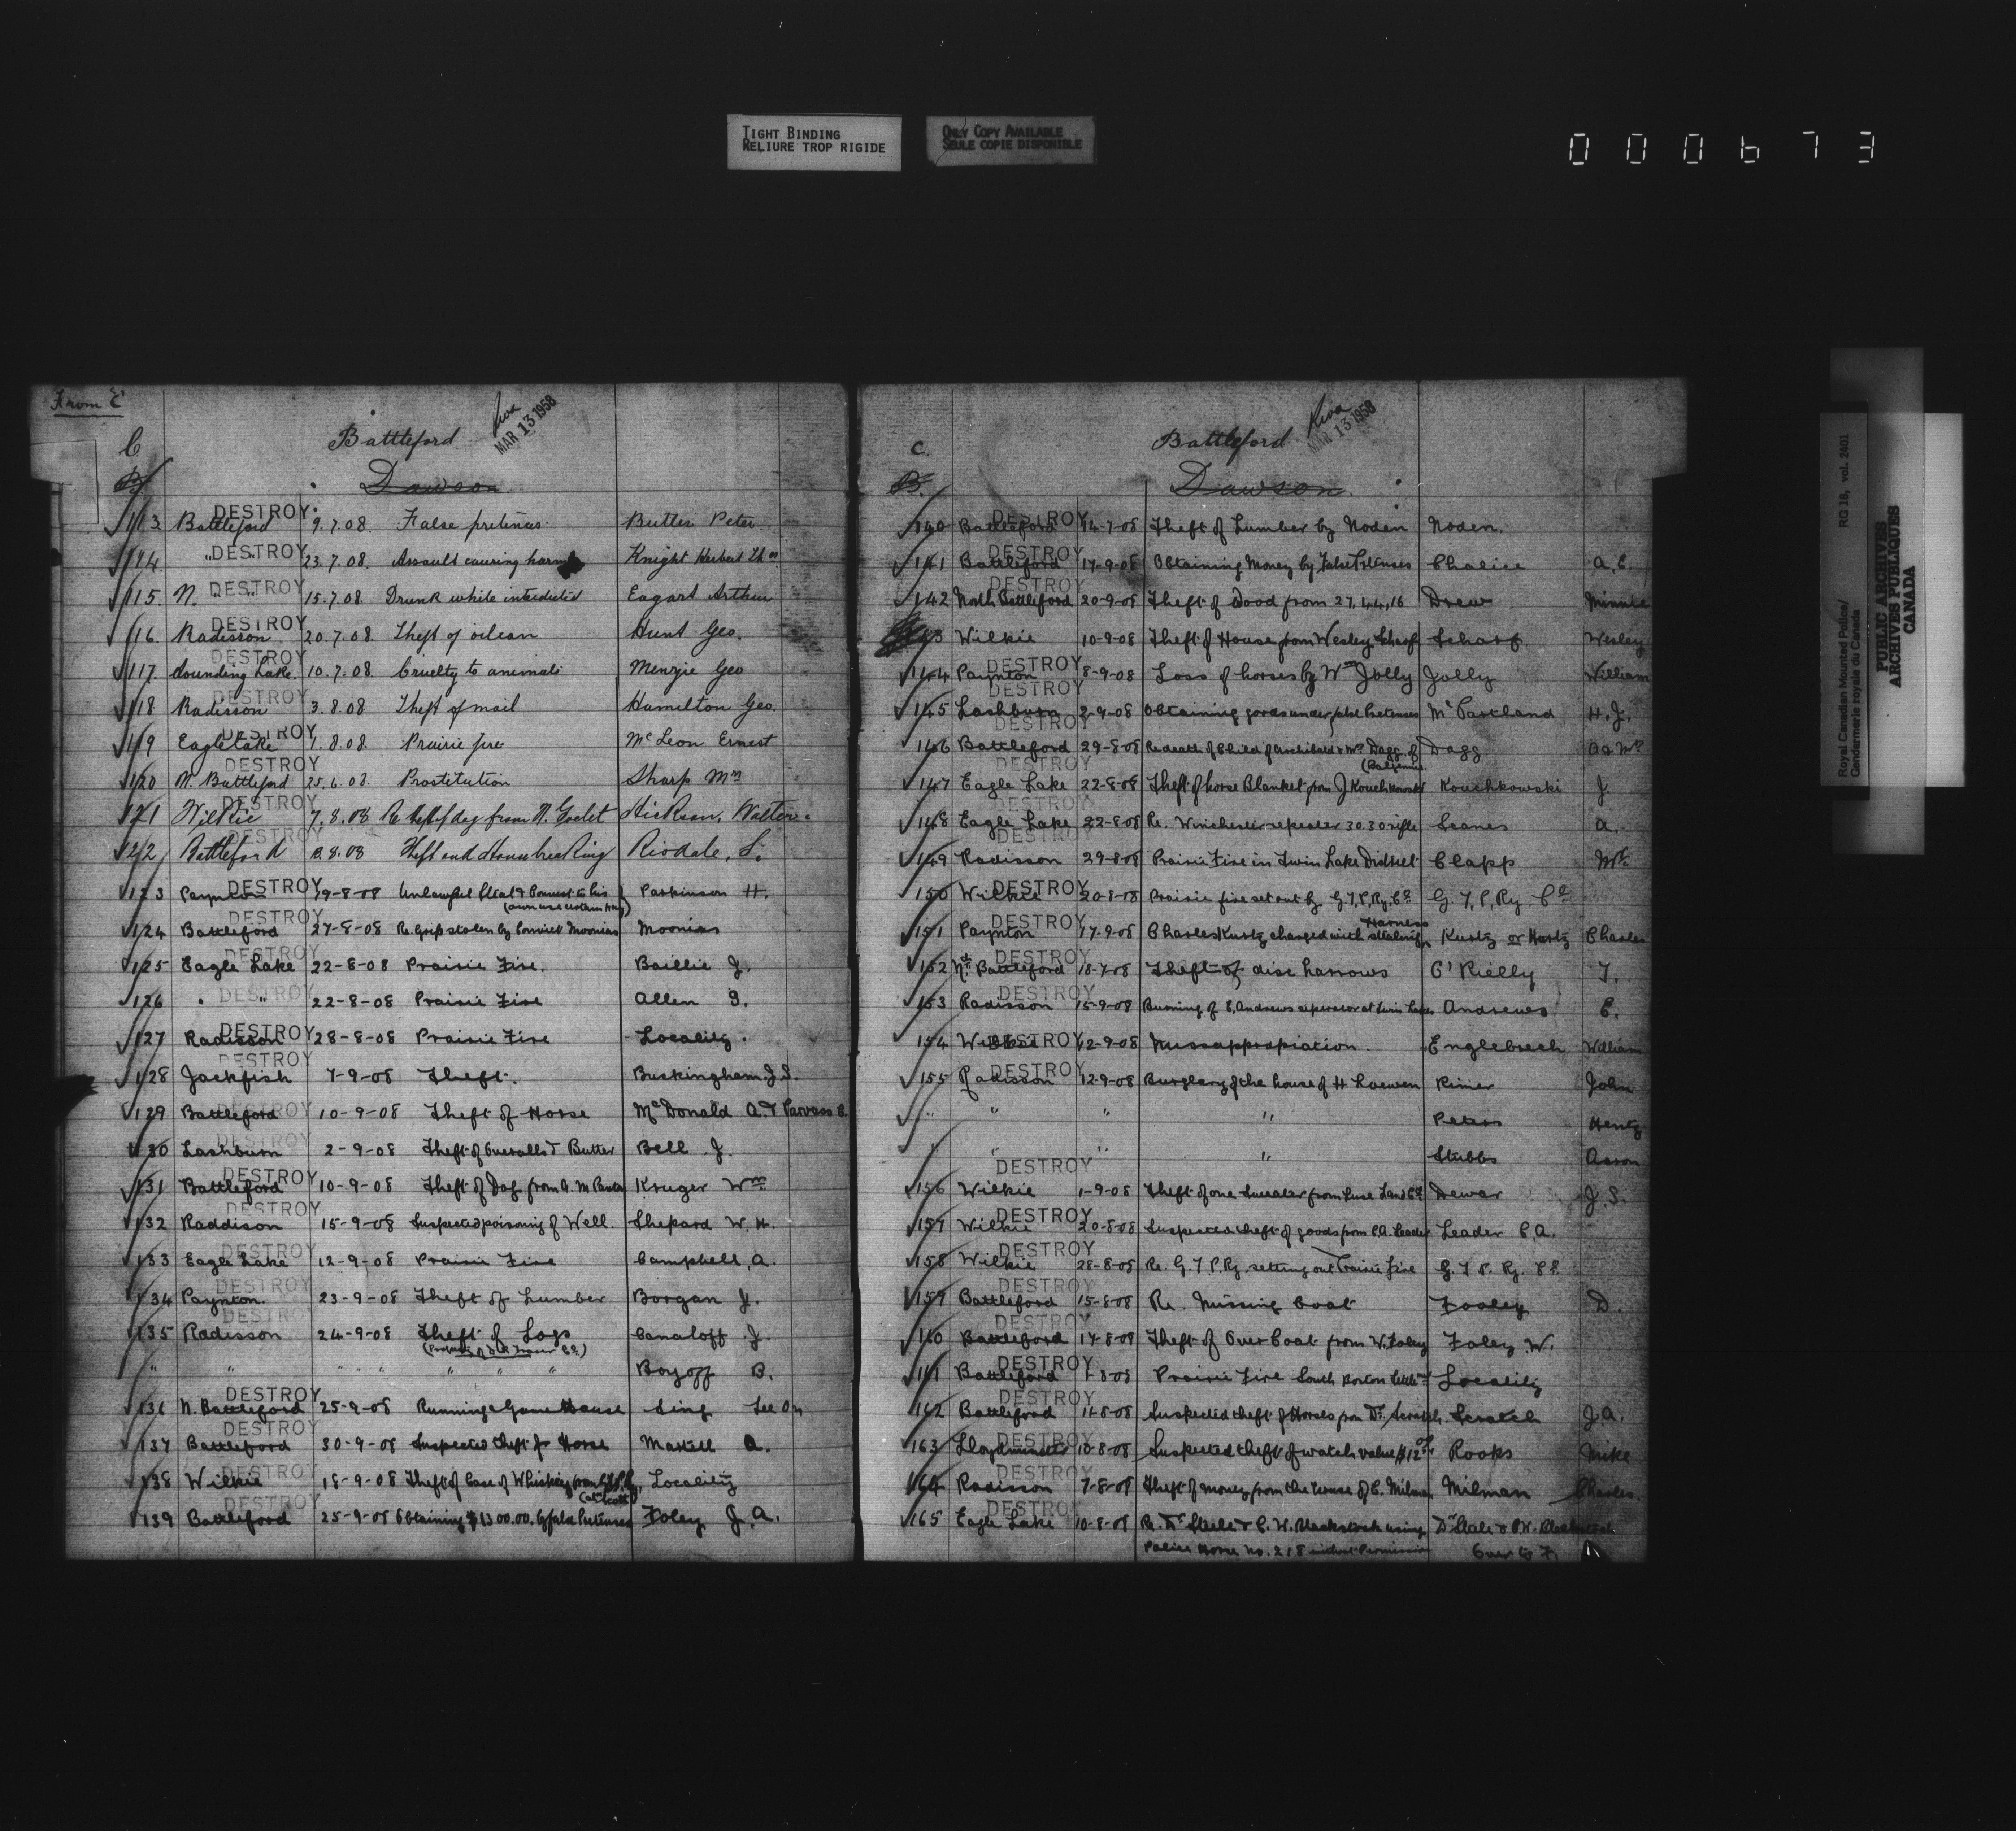 TIGHT BINDING
RELIURE TROP RIGIDE
ONLY COPY AVAILABLE
SEULE COPIE DISPONIBLE
000673
From C
C Battleford MAR 13 1958
B Dawson
113 Battleford DESTROY 9.7.08. False pretences Butler Peter
114 " DESTROY 23.7.08. Assault causing harm Knight Herbert
115. N. " " DESTROY 15.7.08 Drunk while interdicted Eagart Arthur
116. Radisson DESTROY 20.7.08. Theft of oilcan Hunt Geo.
117. Sounding Lake DESTROY 10.7.08. Cruelty to animals Menzie Geo
118 Radisson DESTROY 3.8.08 Theft of mail Hamilton Geo.
119 Eagle Lake DESTROY 1.8.08. Prairie fire McLeon Ernest
120 N. Battleford DESTROY 25.6.08. Prostitution Sharp Mm
121 Wilkie DESTROY 7.8.08 Re theft of dog from N. Godet Hickson, Walter
122 Battleford DESTROY 8.8.08 Theft and Housebreaking Risdale, S.
123 Paynton DESTROY 19-8-08 Unlawful Steal & Convert to his Parkinson H.
(own use certain hay)
124 Battleford DESTROY 27-8-08 Re. Grip stolen by Convict Moonias Moonias
125 Eagle Lake DESTROY 22-8-08 Prairie Fire. Baillie J.
126 " " DESTROY 22-8-08 Prairie Fire Allen G.
127 Radisson DESTROY 28-8-08 Prairie Fire Locality.
128 Jackfish DESTROY 7-9-08 Theft. Buckingham J.S.
129 Battleford DESTROY 10-9-08 Theft of Horse McDonald A. &
130 Lashburn DESTROY 2-9-08 Theft of Overalls & Butter Bell J.
131 Battleford DESTROY 10-9-08 Theft of Dog from A. M Kruger Wm
132 Raddison DESTROY 15-9-08 Suspected poisoning of Well. Shepard W. H.
133 Eagle Lake DESTROY 12-9-08 Prairie Fire Campbell A.
134 Paynton DESTROY 23-9-08 Theft of Lumber Borgan J.
135 Radisson DESTROY 24-9-08 Theft of Logs Canaloff J.
" " " " " " " " Boyoff B.
136 N. Battleford DESTROY 25-9-08 Running a Game House Sing Lee On
137 Battleford DESTROY 30-9-08 Suspected theft of Horse Markell A.
138 Wilkie DESTROY 18-9-08 Theft of Case of Whiskey from Locality
(at Scott)
139 Battleford DESTROY 25-9-08 Obtaining $1300.00. by false Pretenses Foley J.A.
C. Battleford MAR 13 1958
B. Dawson
140 Battleford DESTROY 14-7-08 Theft of Lumber by Noden Noden.
141 Battleford DESTROY 17-9-08 Obtaining Money by False Pretenses Chalice A.E.
142 North Battleford DESTROY 20-9-08 Theft of Wood from 27,44,16 Drew Minnie
143 Wilkie 10-9-08 Theft of House from Wesley Scharf Scharf Wesley
144 Paynton DESTROY 8-9-08 Loss of horses by Wm Jolly Jolly William
145 Lashburn DESTROY 2-9-08 Obtaining goods under false Pretenses McPartland H.J.
146 Battleford DESTROY 29-8-08 Re death of Child of Archibald & Mrs Dagg of Dagg
147 Eagle Lake DESTROY 22-8-08 Theft of horse Blanket from J Kouchkowski Kouchkowski J
148 Eagle Lake DESTROY 22-8-08 Re. Winchester repeater 30.30 rifle Scanes A.
149 Radisson DESTROY 29-8-08 Prairie Fire in Twin Lake District Clapp Mr
150 Wilkie DESTROY 20-8-08 Prairie fire set out by G.T.P. Ry. Co G.T.P. Ry. Co
151 Paynton DESTROY 17-9-08 Charles Kurtz charged with stealing Harness Kurtz or Hurtz Charles
152 Nt. Battleford DESTROY 18-7-08 Theft of disc harrows O'Rielly T.
153 Radisson DESTROY 15-9-08 Burning of E. Andrews seperator at Twin Lakes Andrews E.
154 Wilkie DESTROY 12-9-08 Missappropriation. Englebrech William
155 Radisson DESTROY 12-9-08 Burglary of the house of H Loewen Rimer John
" " " " Peters Henry
" " " " Stubbs Aaron
156 Wilkie DESTROY 1-9-08 Theft of one Sweater from Luse Land Co. Dewar J.S.
157 Wilkie DESTROY 20-8-08 Suspected theft of goods from C.A. Leader Leader C.A.
158 Wilkie DESTROY 28-8-08 Re. G.T.P. Ry. setting out Prairie Fire G.T.P. Ry. Co.
159 Battleford DESTROY 15-8-08 Re. Missing Coat Fooley D.
160 Battleford DESTROY 17-8-08 Theft of Over Coat from W. Foley Foley W.
161 Battleford DESTROY 1-8-08 Prairie Fire South Locality
162 Battleford DESTROY 11-8-08 Suspected theft of Horses from Dr. Scratch Scratch J.A.
163 Lloydminster DESTROY 10-8-08 Suspected theft of watch value $12 Rooks Mike
164 Radisson DESTROY 7-8-08 Theft of money from the house of C. Milman Milman Charles.
165 Eagle Lake DESTROY 10-8-08 Re. Dr Steele & C. W. Blackstock using Dr Stale & C.W. Blackstock
Police Horse No. 218 without Permission Over to F.
Royal Canadian Mounted Police/
Gendarmerie royale du Canada
RG 18, vol. 2401
PUBLIC ARCHIVES
ARCHIVES PUBLIQUES
CANADA